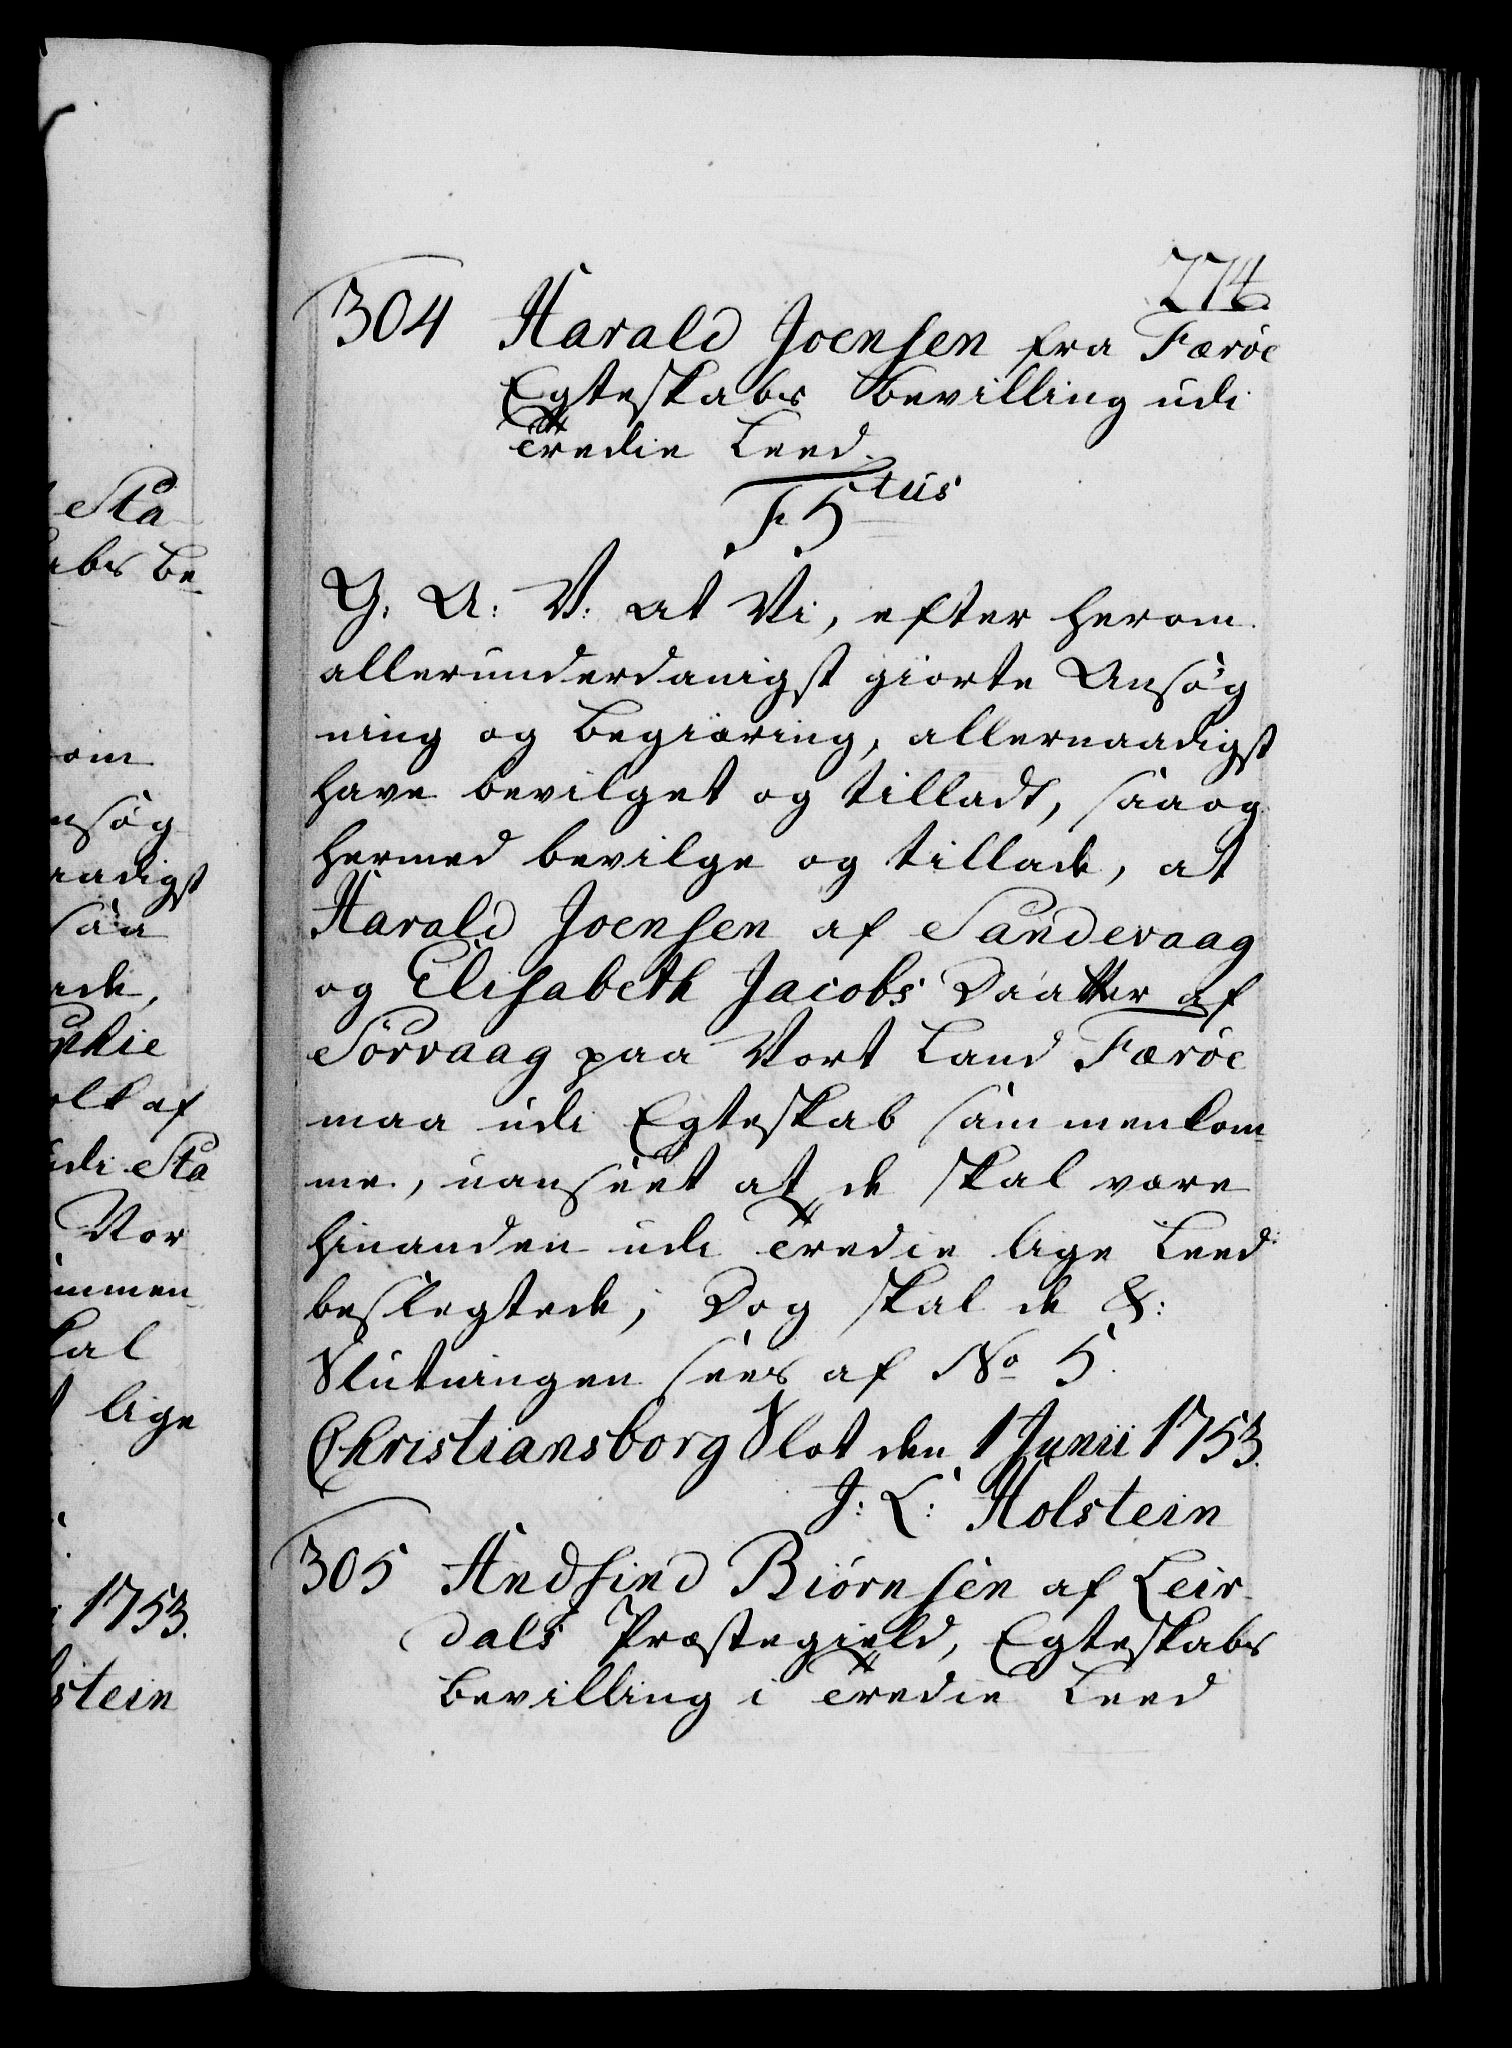 Sta
abs Be-
om
nsøg
aadigst
saa
ade,
phie
olk af
udi Sta
Vor
ammen-
kal
lige
1753.
stein
274.
304 Harald Joensen fra Færøe
Egteskabs Bevilling udi
tredie Leed.
F 5tus
G. A: V: at Vi, efter herom
allerunderdanigst giorte Ansøg
ning og Begiæring, allernaadigst
have bevilget og tilladt, saa og
hermed bevilge og tillade, at
Harald Joensen af Sandevaag
og Elisabeth Jacobs Daatter af
Sorvaag paa Vort Land Færøe
maa udi Egteskab sammenkom-
me, uanseet at de skal være
hinanden udi tredie lige Leed
beslegtede; Dog skal de &:
Slutningen sees af No 5.
Christiansborg Slot den 1 Junii 1753.
J: L: Holstein
305 Andsind Biørnsen af Leir-
dals Præstegield, Egteskabs
Bevilling i tredie Leed